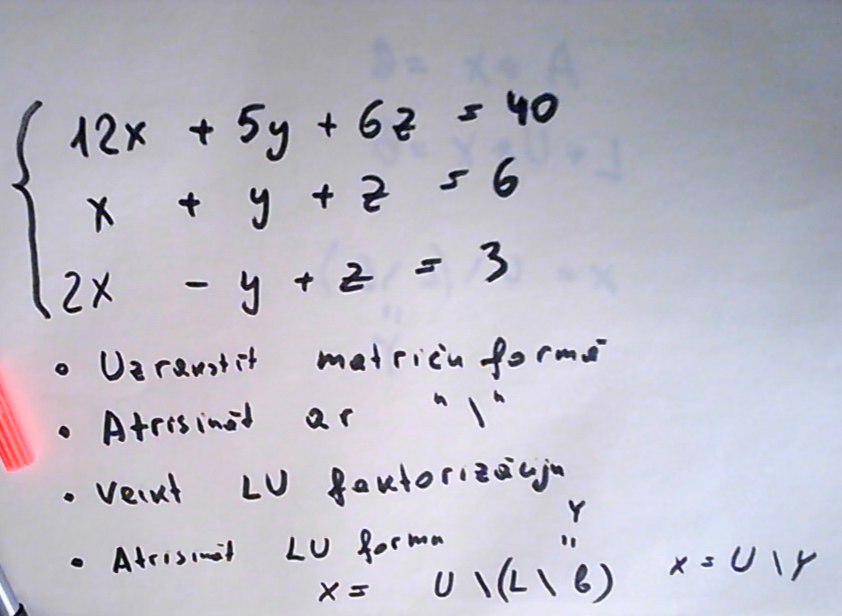 12x + 5y + 6z = 40
x + y + z = 6
2x - y + z = 3
• Uzrakstīt matricu formā
• Atrisināt ar "\"
• Veikt LU faktorizāciju
• Atrisināt LU forma
Y
"
x = U\(L\b) x = U\Y